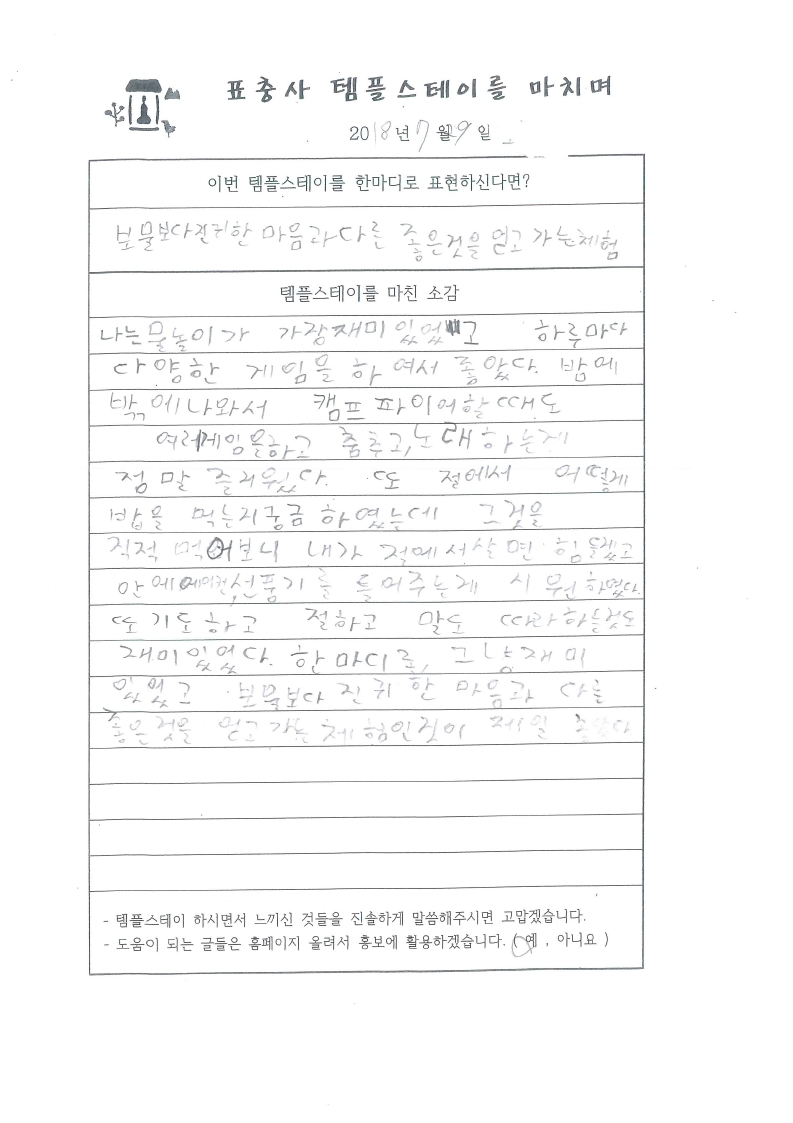 표충사 템플스테이를 마치며
2018년 7월 29일
이번 템플스테이를 한마디로 표현하신다면?
보물보다진귀한 마음과다른 좋은것을 얻고 가는체험
템플스테이를 마친 소감
나는물놀이가 가장재미있었고 하루마다
다양한 게임을 하여서 좋았다. 밤에
밖에나와서 캠프파이어할때도
여러게임을하고 춤추고,노래하는게
점말 즐러웠다. 또 절에서 어떻게
밥을 먹는지궁금 하였는데 그것을
직적 먹어보니 내가 절에서살면 힘들겠고
안에에어컨,선풍기를 틀어주는게 시원하였다.
또기도하고 절하고 말도 따라하는것도
재미있었다. 한마디로, 그냥재미
있었고 보물보다 진귀한 마음과 다른
좋은것을 얻고가는체험인것이 제일 좋았다
- 템플스테이 하시면서 느끼신 것들을 진솔하게 말씀해주시면 고맙겠습니다.
- 도움이 되는 글들은 홈페이지 올려서 홍보에 활용하겠습니다. ( 예 , 아니요 )